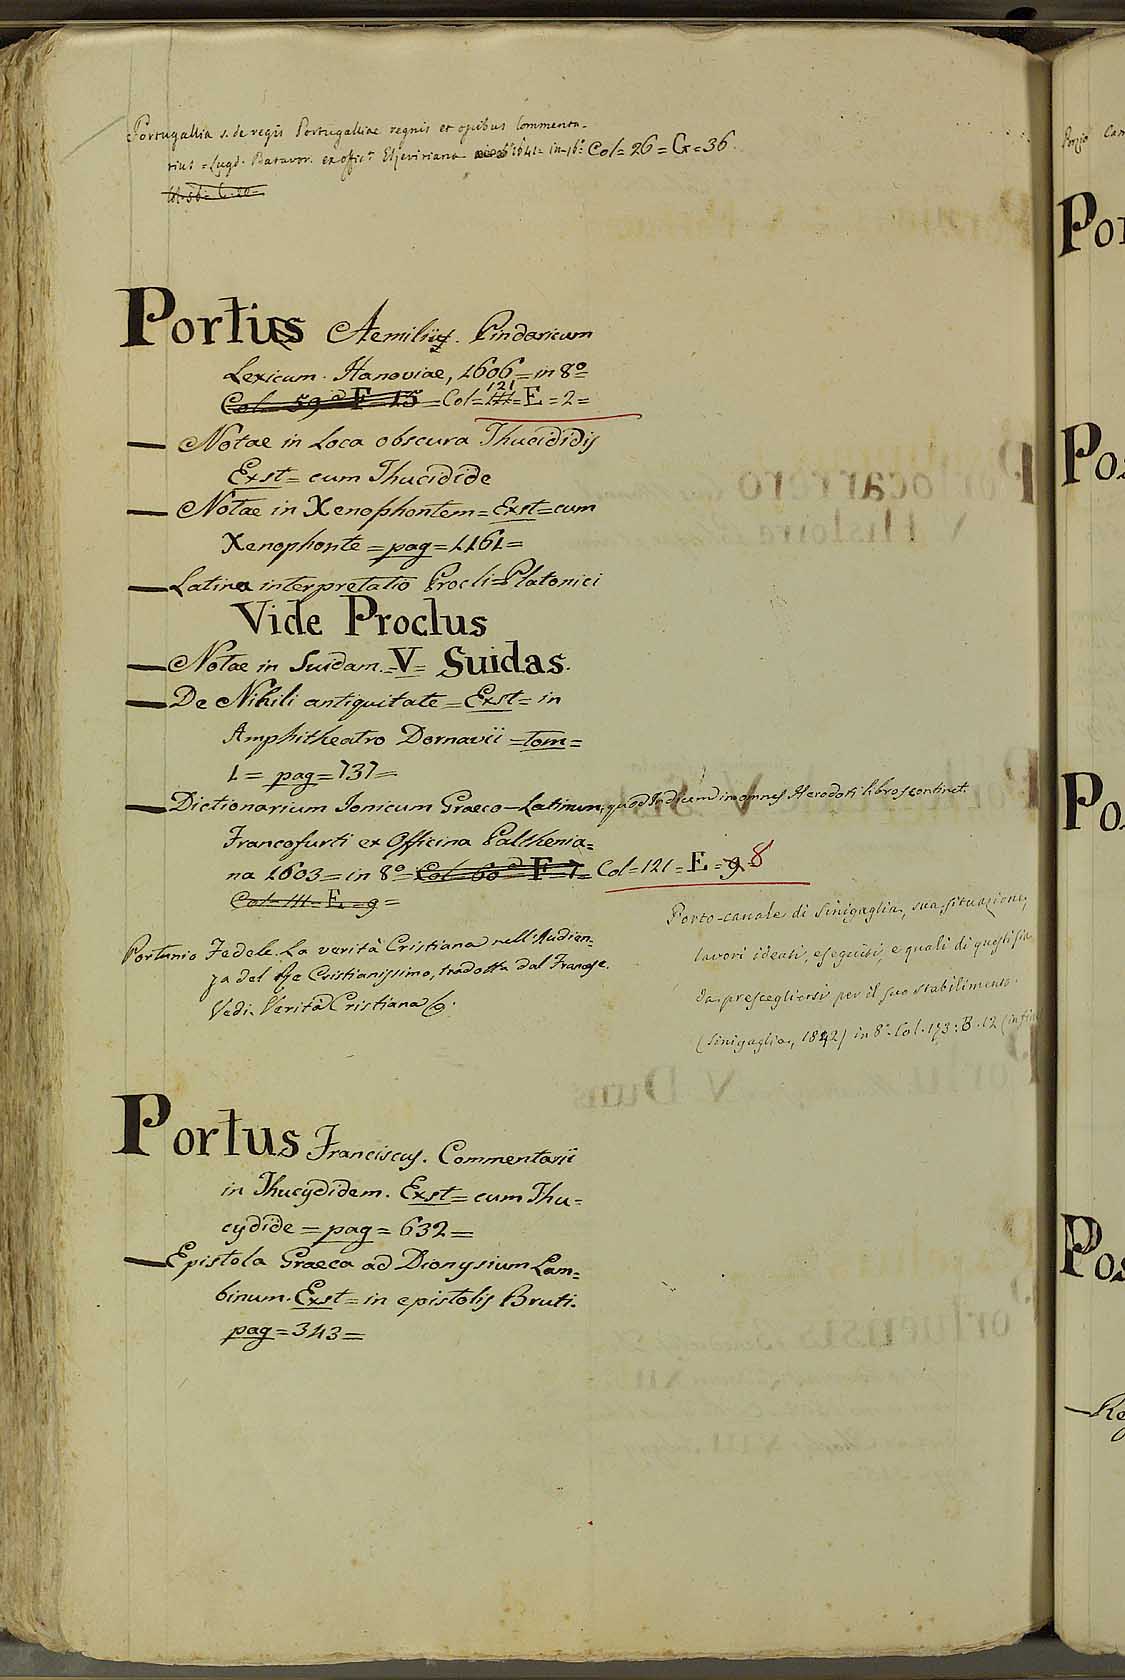 Portugallia s. de regis Portugalliae regnis et opibus Commenta-
rius = Lugd. Batavor. ex offic.ª Elzeviriana 1641 = in-16.º Col = 26 = G = 36.
Portius Aemilius. Pindaricum
Lexicum. Hanoviae, 1606 = in 8º =
Col = 59 = F = 15 = Col = 121 = E = 2 =
— Notae in Loca obscura Thucididis
Exst = cum Thucidide
— Notae in Xenophontem = Exst = cum
Xenophonte = pag = 1161 =
— Latina interpretatio Procli = Platonici
Vide Proclus
— Notae in Suidam. = V = Suidas.
— De Nihili antiquitate = Exst = in
Amphitheatro Dornavii = tom =
1 = pag = 737 =
— Dictionarium Ionicum Graeco-Latinum, quod Indicem in omnes Herodoti libros continet.
Francofurti ex Officina Palthenia=
na 1603 = in 8º = Col = 60 = F = 7 = Col = 121 = E = 9 = 8
Col = 111 = E = 9 =
Portunio Fedele. La verità Cristiana nell'Audien=
za del Re Cristianissimo, tradotta dal Francese.
Vedi. Verità Cristiana
Porto-canale di Sinigaglia, sua situazione,
lavori ideati, eseguiti, e quali di questi sia
da prescegliersi per il suo stabilimento.
(Sinigaglia, 1842) in 8º. Col. 173: B. 12 (in fine
Portus Franciscus. Commentarii
in Thucydidem. Exst = cum Thu=
cydide = pag = 632 =
— Epistola Graeca ad Dionysium Lam=
binum. Exst = in epistolis Bruti.
pag = 343 =
Porzio Cam
Por
Pos
Po
Pos